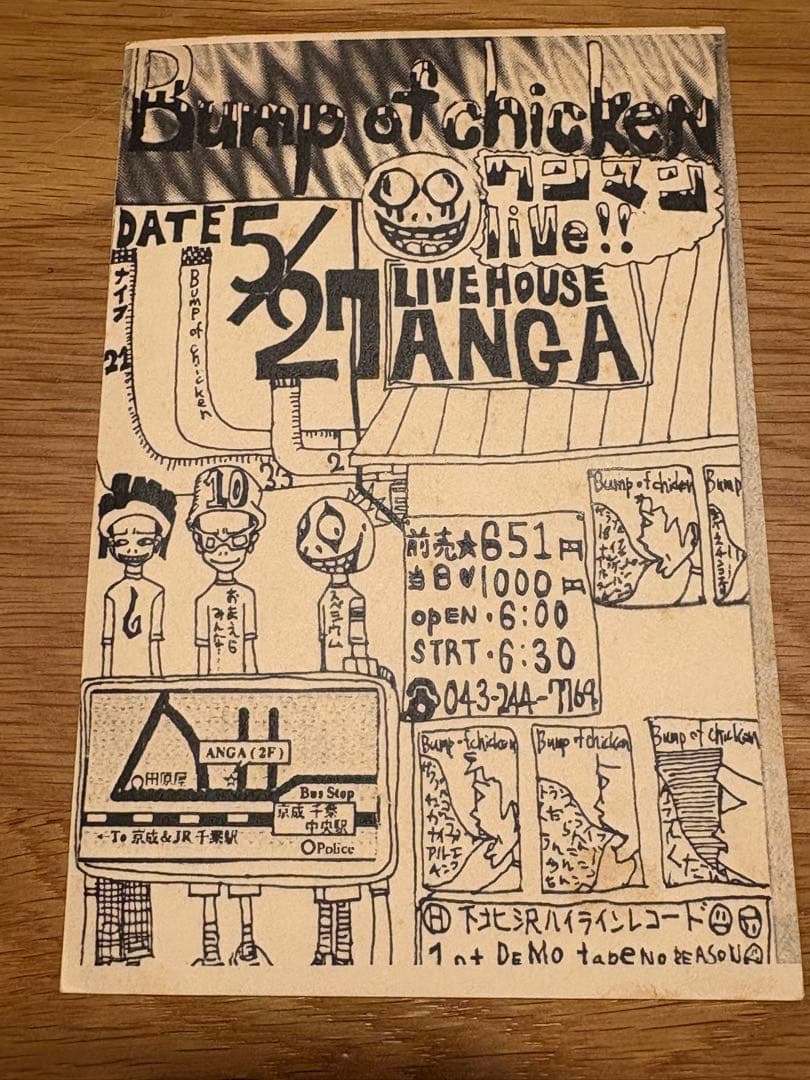 Bump of chicken
ワンマン
live!!
DATE 5/27
LIVE HOUSE
ANGA
ナイフ
21
Bump of chicken
23
2
10
おまえら
みんな…
スペシウム
前売★651円
当日♥1000円
OPEN・6:00
STRT・6:30
☎043-244-7169
Bump of chicken
Bump
ANGA(2F)
田原屋
Bus Stop
京成 千葉
中央駅
←To 京成&JR千葉駅
Police
Bump of chicken
ナイフ
アルエ
Bump of chicken
Bump of chicken
下北沢ハイラインレコード
1nt DEMO tape NO REASON